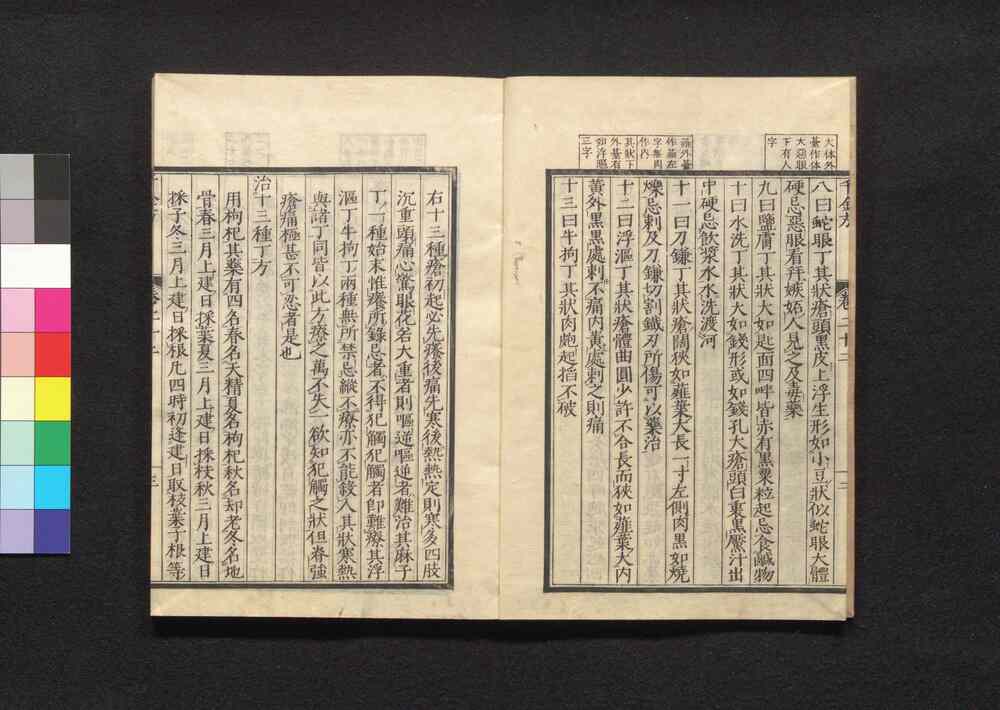 大体外
臺作体
大惡眼
下有人
字
八曰蛇眼丁其狀瘡頭黑皮上浮生形如小豆狀似蛇眼大體
硬忌惡眼看幷嫉妬人見之及毒藥
九曰鹽膚丁其狀大如匙面四畔皆赤有黑粟粒起忌食鹹物
十曰水洗丁其狀大如錢形或如錢孔大瘡頭白裏黑黶汁出
中硬忌飲漿水水洗渡河
薤外臺
作韮左
字無肉
作內
其狀下
外臺有
如浮漚
三字
十一曰刀鎌丁其狀瘡闊狹如薤葉大長一寸左側肉黑如燒
爍忌刺及刀鎌切割鐵刃所傷可以藥治
十二曰浮漚丁其狀瘡體曲圓少許不合長而狹如薤葉大內
黃外黑黑處刺不痛內黃處刺之則痛
十三曰牛拘丁其狀肉皰起掐不破
右十三種瘡初起必先癢後痛先寒後熱熱定則寒多四肢
沉重頭痛心驚眼花若大重者則嘔逆嘔逆者難治其麻子
丁一種始末惟癢所錄忌者不得犯觸犯觸者卽難療其浮
漚丁牛拘丁兩種無所禁忌縱不療亦不能殺人其狀寒熱
與諸丁同皆以此方療之萬不失一欲知犯觸之狀但脊強
瘡痛極甚不可忍者是也
治十三種丁方
用枸杞其藥有四名春名天精夏名枸杞秋名却老冬名地
骨春三月上建日採葉夏三月上建日採枝秋三月上建日
採子冬三月上建日採根凡四時初逢建日取枝葉子根等